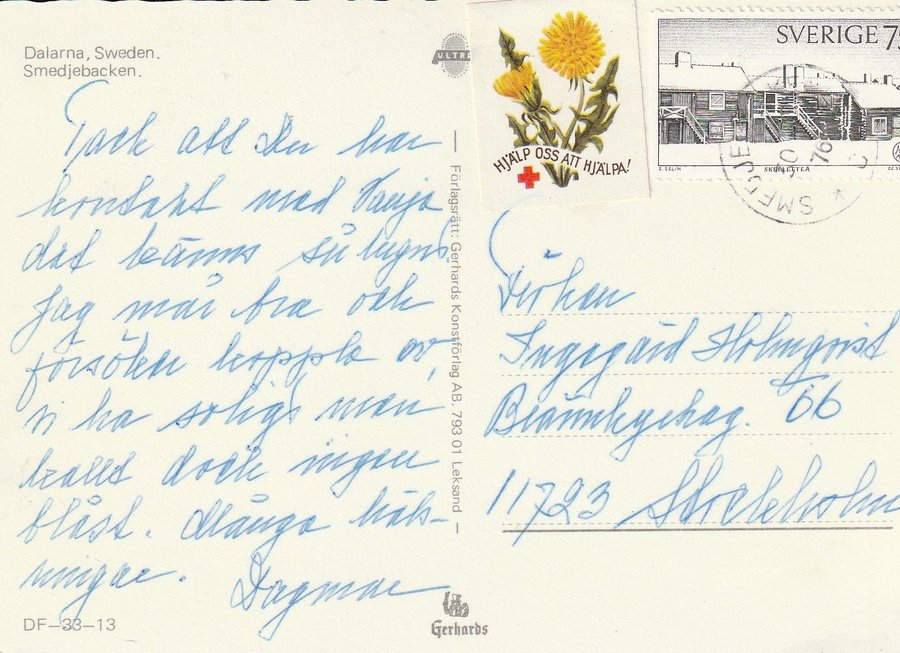 Dalarna, Sweden.
Smedjebacken.
Tack att Du har
kontakt med Vanja
det känns så lugnt
Jag mår bra och
försöker koppla av,
vi ha soligt men
kallt dock ingen
blåst. Många häls-
ningar. Dagmar
DF-33-13
ULTRA
Förlagsrätt: Gerhards Konstförlag AB. 793 01 Leksand
Gerhards
HJÄLP OSS ATT HJÄLPA!
SVERIGE 75
S. SELIN SKELLEFTEÅ CZ. SL
SMEDJE
76
Fröken
Ingegärd Holmqvist
66
11723 Stockholm